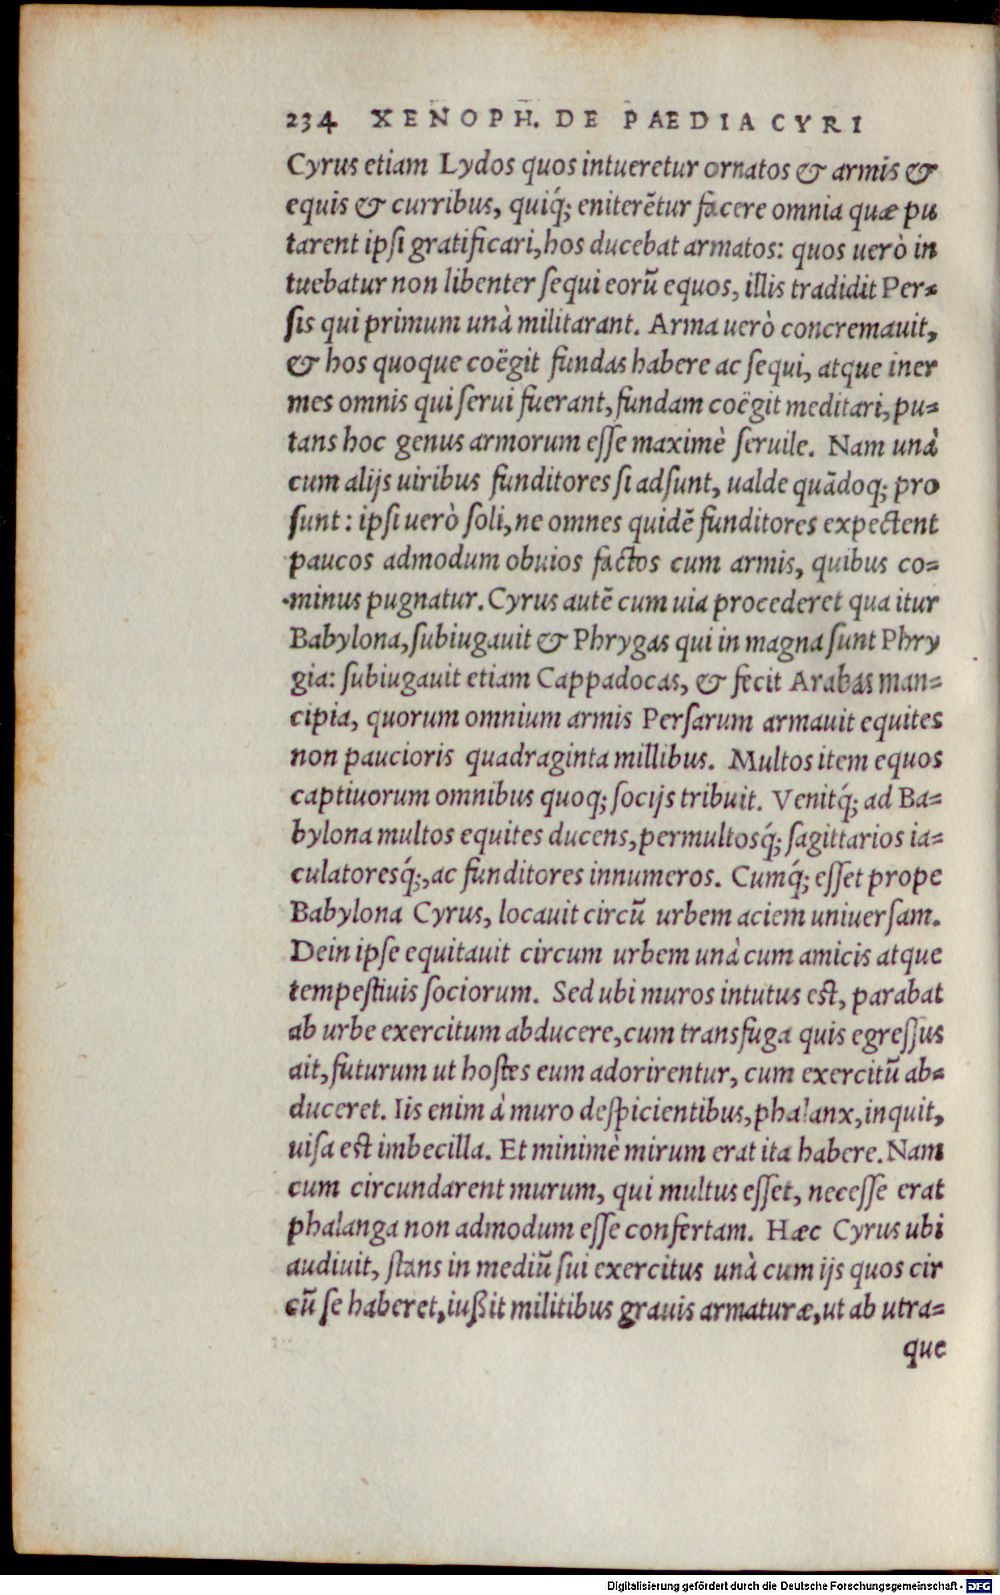 234 XENOPH. DE PAEDIA CYRI
Cyrus etiam Lydos quos intueretur ornatos & armis &
equis & curribus, quiq́; eniterētur facere omnia quæ pu
tarent ipsi gratificari, hos ducebat armatos: quos uerò in
tuebatur non libenter sequi eorū equos, illis tradidit Per-
sis qui primum unà militarant. Arma uerò concremauit,
& hos quoque coëgit fundas habere ac sequi, atque iner
mes omnis qui serui fuerant, fundam coëgit meditari, pu-
tans hoc genus armorum esse maximè seruile. Nam unà
cum alijs uiribus funditores si adsunt, ualde quādoq; pro
sunt: ipsi uerò soli, ne omnes quidē funditores expectent
paucos admodum obuios factos cum armis, quibus co-
minus pugnatur. Cyrus autē cum uia procederet qua itur
Babylona, subiugauit & Phrygas qui in magna sunt Phry
gia: subiugauit etiam Cappadocas, & fecit Arabas man-
cipia, quorum omnium armis Persarum armauit equites
non paucioris quadraginta millibus. Multos item equos
captiuorum omnibus quoq; socijs tribuit. Venitq́; ad Ba-
bylona multos equites ducens, permultosq́; sagittarios ia-
culatoresq́;, ac funditores innumeros. Cumq́; esset prope
Babylona Cyrus, locauit circū urbem aciem uniuersam.
Dein ipse equitauit circum urbem unà cum amicis atque
tempestiuis sociorum. Sed ubi muros intutus est, parabat
ab urbe exercitum abducere, cum transfuga quis egressus
ait, futurum ut hostes eum adorirentur, cum exercitū ab-
duceret. Iis enim à muro despicientibus, phalanx, inquit,
uisa est imbecilla. Et minimè mirum erat ita habere. Nam
cum circundarent murum, qui multus esset, necesse erat
phalanga non admodum esse confertam. Hæc Cyrus ubi
audiuit, stans in mediū sui exercitus unà cum ijs quos cir
cū se haberet, iußit militibus grauis armaturæ, ut ab utra-
que
Digitalisierung gefördert durch die Deutsche Forschungsgemeinschaft - DFG